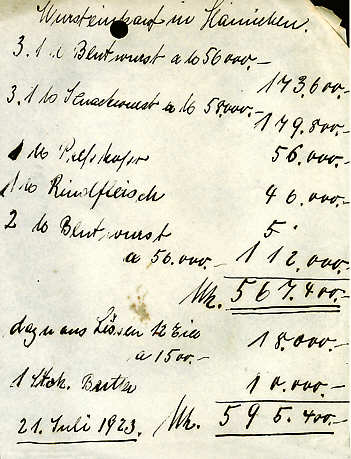 Wursteinkauf in Hainichen.
3.1 lb Blutwurst a lb 56000.-
173.600.-
3.1 lb a lb 58.000.-
179.800.-
1 lb 56.000.-
1 lb Rindfleisch 46.000.-
2 lb Blutwurst
a 56.000.- 112.000.-
Mk. 567.400.-
dazu aus Lissen 12 Eier 18.000.-
a 1500.-
1 Stck. Butter 10.000.-
21. Juli 1923. Mk. 595.400.-